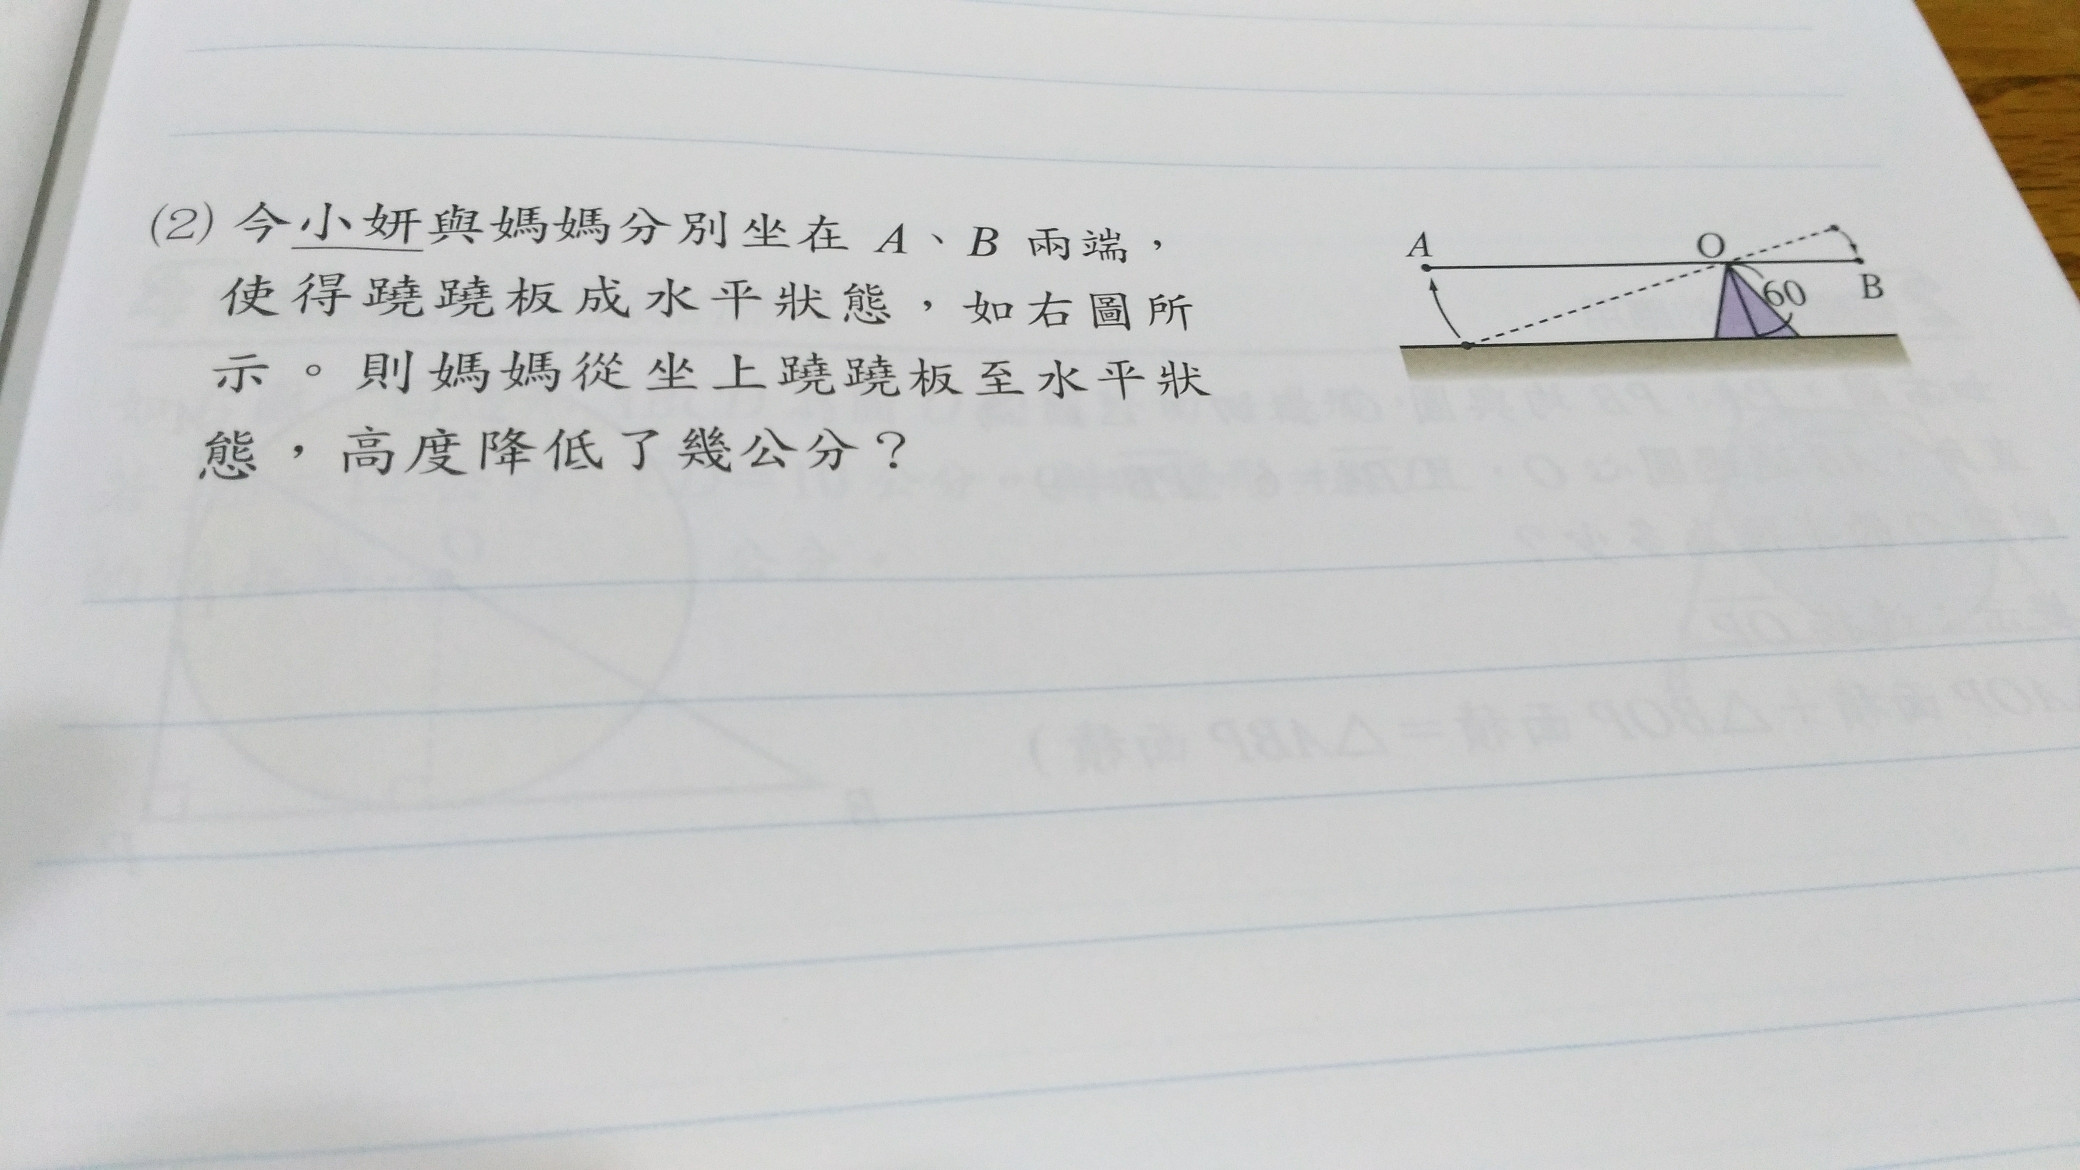 (2) 今小妍與媽媽分別坐在 A、B 兩端，
使得蹺蹺板成水平狀態，如右圖所
示。則媽媽從坐上蹺蹺板至水平狀
態，高度降低了幾公分？
A
O
60
B